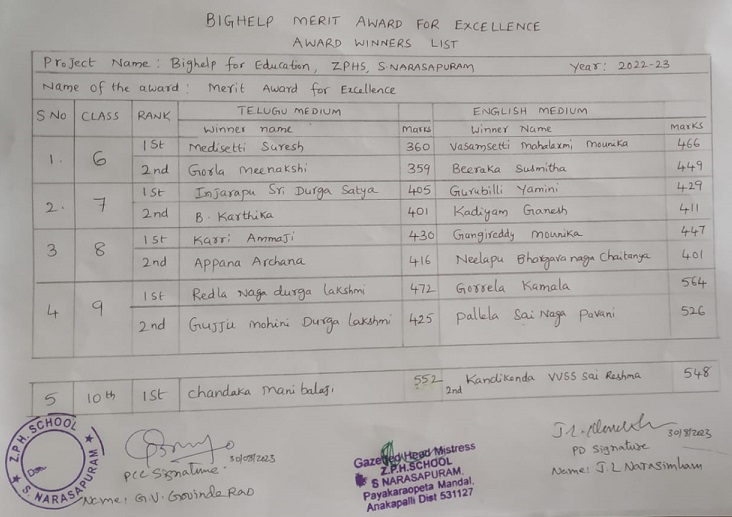 BIGHELP MERIT AWARD FOR EXCELLENCE
AWARD WINNERS LIST
Project Name: Bighelp for Education, ZPHS, S.NARASAPURAM Year: 2022-23
Name of the award: Merit Award for Excellence
S NO CLASS RANK TELUGU MEDIUM ENGLISH MEDIUM
Winner name Marks Winner Name Marks
1. 6 1st Medisetti Suresh 360 Vasamsetti Mahalaxmi Mounika 466
2nd Gorla Meenakshi 359 Beeraka Susmitha 449
2. 7 1st Injarapu Sri Durga Satya 405 Gurubilli Yamini 429
2nd B. Karthika 401 Kadiyam Ganesh 411
3 8 1st Karri Ammaji 430 Gangireddy Mounika 447
2nd Appana Archana 416 Neelapu Bhargava naga Chaitanya 401
4 9 1st Redla Naga durga lakshmi 472 Gorrela Kamala 564
2nd Gujju Mohini Durga Lakshmi 425 Pallela Sai Naga Pavani 526
5 10th 1st Chandaka Mani balaji 552 2nd Kandikonda VVSS Sai Reshma 548
Z.P.H. SCHOOL
S. NARASAPURAM
30/08/2023
PCC Signature.
Name: G.V. Govinda Rao
Gazetted Head Mistress
Z.P.H.SCHOOL
S NARASAPURAM,
Payakaraopeta Mandal,
Anakapalli Dist 531127
30/8/2023
PD Signature
Name: J.L Narasimham